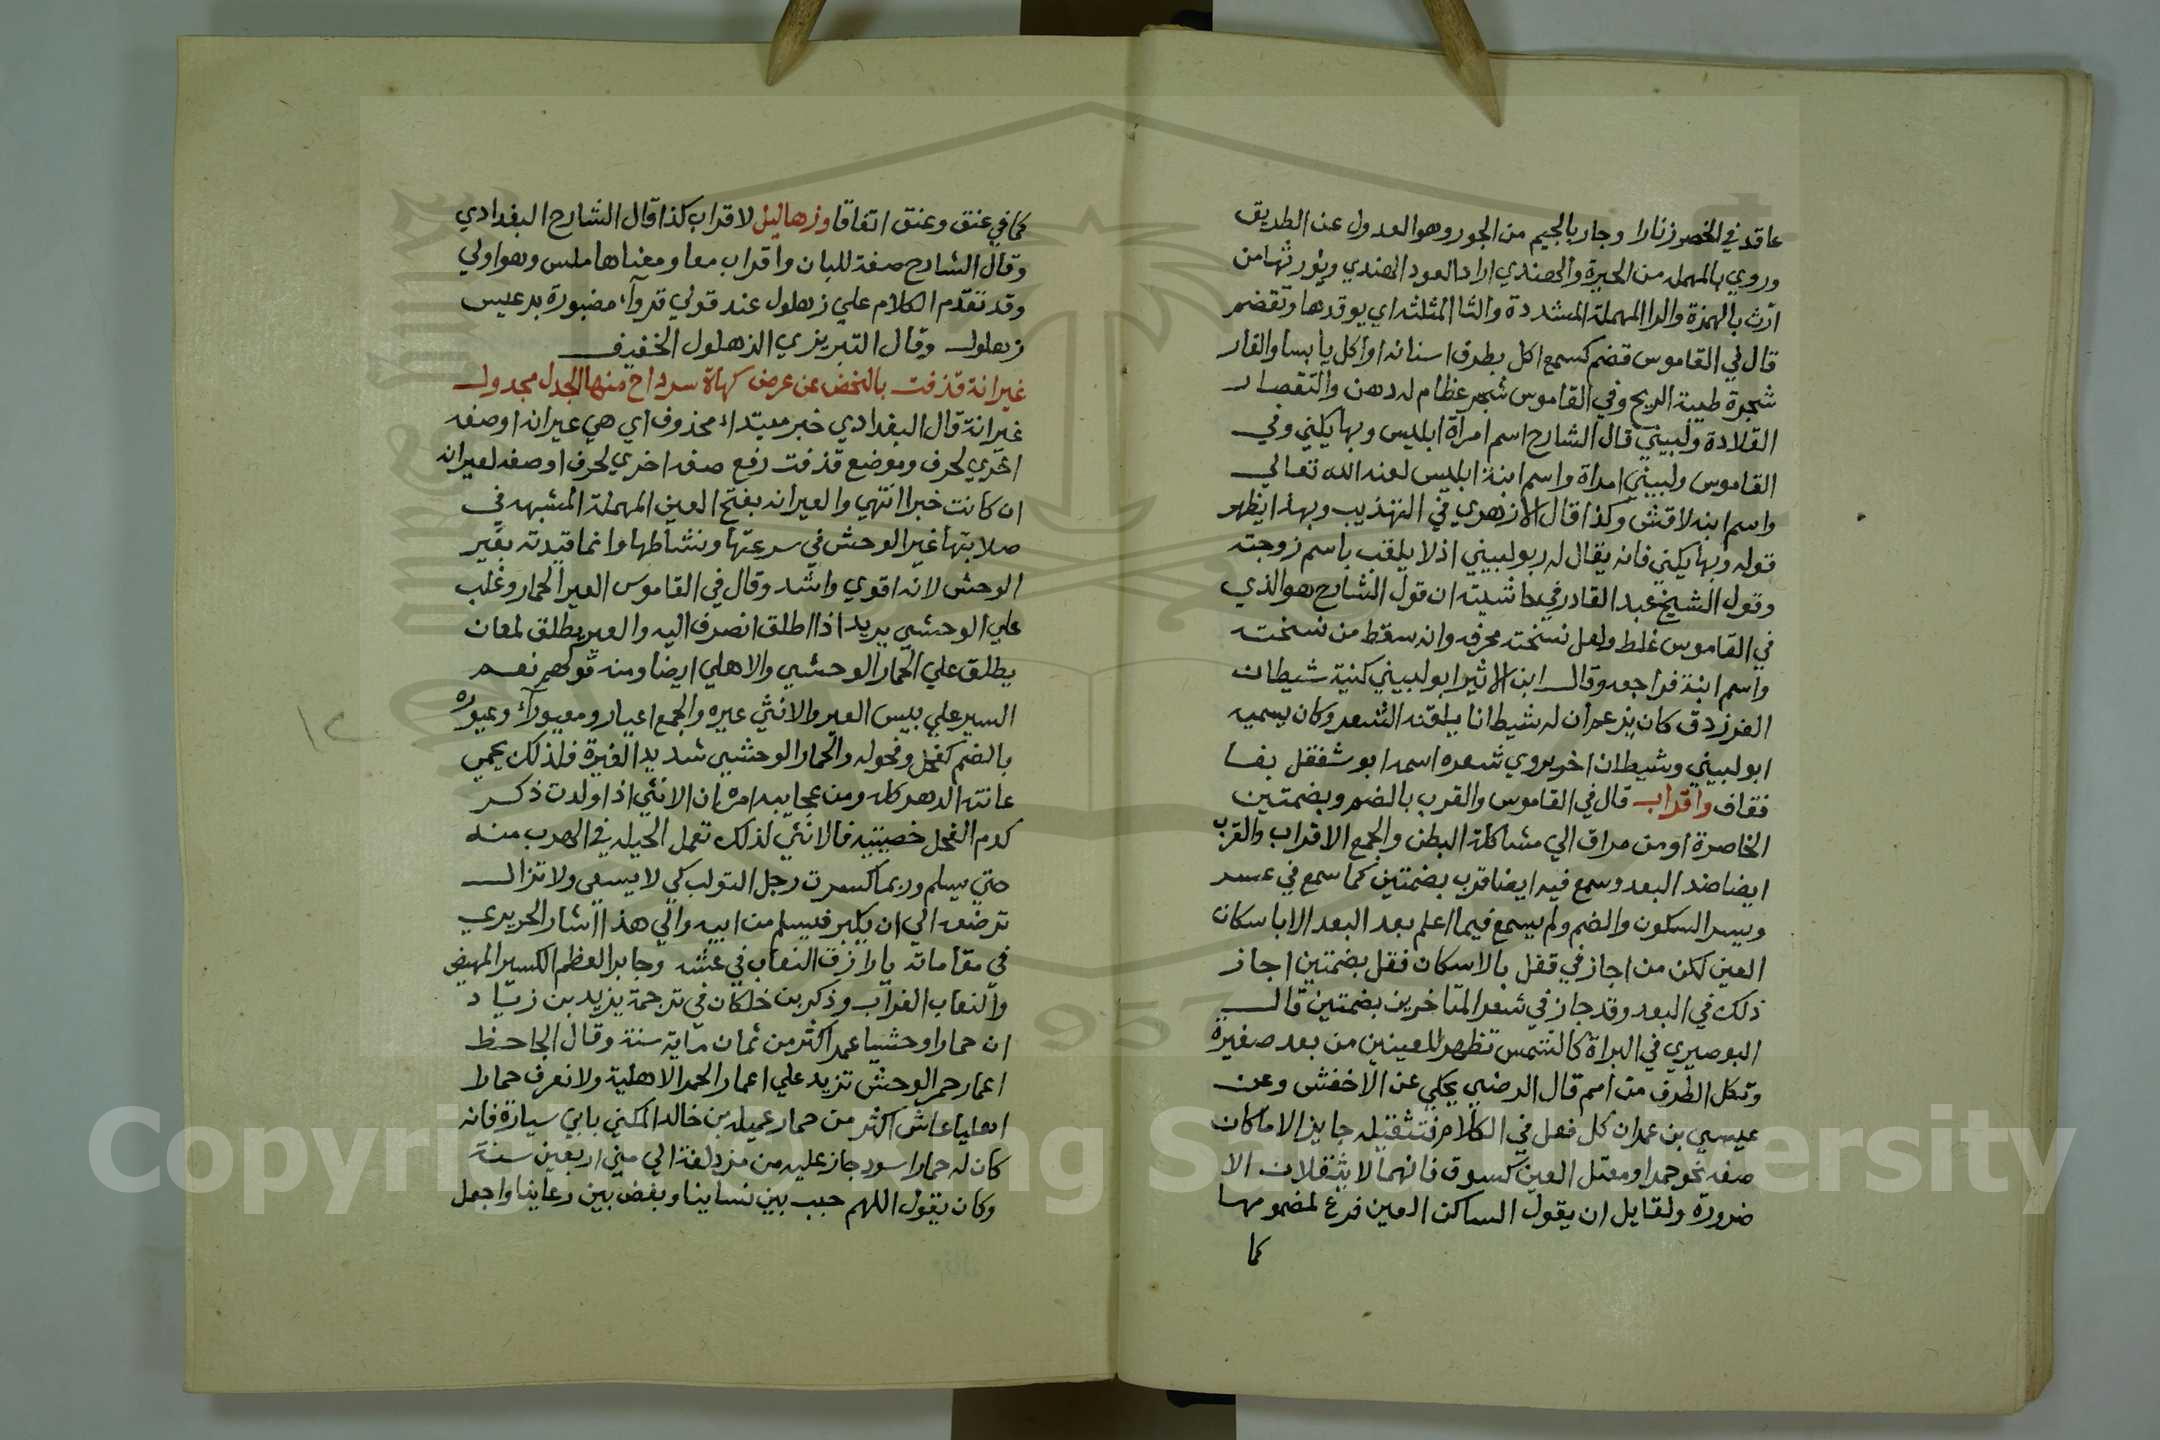 عاقد في الخصر زنارا وجار بالجيم من الجور وهو العدول عن الطريق
وروي بالمهمله من الحيرة والهندي اراد العود الهندي ويؤرثها من
ارّث بالهمزة والرا المهملة المشددة والثا المثلثه اي يوقدها وتقضم
قال في القاموس قضم كسمع اكل بطرف اسنانه او اكل يابسا والغار
شجرة طيبة الريح وفي القاموس شجر عظام له دهن والتقصار
القلادة ولبيني قال الشارح اسم امراة ابليس وبها يكني وفي
القاموس ولبيني امراة واسم ابنة ابليس لعنه الله تعالي
واسم ابنه لاقش وكذا قال الازهري في التهذيب وبهذا يظهر
قوله وبها يكني فانه يقال له ابو لبيني اذ لا يلقب باسم زوجته
وقول الشيخ عبد القادر في حاشيته ان قول الشارح هو الذي
في القاموس غلط ولعل نسخته محرفه وانه سقط من نسخته
واسم ابنة فراجعه وقال ابن الاثير ابو لبيني كنية شيطان
الفرزدق كان يزعم ان له شيطانا يلقنه الشعر وكان يسميه
ابو لبيني وشيطان اخر يروي شعره اسمه ابو شفقل بفا
فقاف واقراب قال في القاموس والقرب بالضم وبضمتين
الخاصرة او من مراق الي مشاكلة البطن والجمع الاقراب والقرب
ايضا ضد البعد وسمع فيه ايضا قرب بضمتين كما سمع في عسر
ويسر السكون والضم ولم يسمع فيما اعلم بعد البعد الا باسكان
العين لكن من اجاز في قفل بالاسكان فقل بضمتين اجاز
ذلك في البعد وقد جاز في شعر المتاخرين بضمتين قال
البوصيري في البراة كالشمس تظهر للعينين من بعد صغيرة
وتكل الطرف من امم قال الرضي يحكي عن الاخفش وعن
عيسي بن عمران كل فعل في الكلام فتثقيله جايز الا ما كان
صفه نحو حمر او معتل العين كسوق فانهما لا يثقلان الا
ضرورة ولقايل ان يقول الساكن العين فرع لمضمومها
كما
كما في عنق وعنق اتفاقا وزهاليل لاقراب كذا قال الشارح البغدادي
وقال الشارح صفة للبان واقراب معا ومعناها ملس وهو اولي
وقد تقدم الكلام علي زهلول عند قولي قروآء مضبورة بدعيس
زهلول وقال التبريزي الزهلول الخفيف
عيرانة قذفت بالنحض عن عرض كهاة سرداح منها الجدل مجدول
عيرانة قال البغدادي خبر مبتداء محذوف اي هي عيرانه او صفه
اخري لحرف وموضع قذفت رفع صفه اخري لحرف او صفه لعيرانه
ان كانت خبرا انتهي والعيرانه بفتح العين المهملة المشبهه في
صلابتها عير الوحش في سرعتها ونشاطها وانما قيدته بعير
الوحش لانه اقوي واشد وقال في القاموس العير الحمار وغلب
علي الوحشي يريد اذا اطلق انصرف اليه والعير يطلق لمعان
يطلق علي الحمار الوحشي والاهلي ايضا ومنه قولهم نعم
السير علي بيس العير والانثي عيره والجمع اعيار ومعيورآء وعيوره
بالضم كفحل وفحوله والحمار الوحشي شديد الغيرة فلذلك يحمي
عانته الدهر كله ومن عجايبه امره ان الانثي اذا ولدت ذكر
كدم الفحل خصيتيه فالانثي لذلك تعمل الحيله في الهرب منه
حتي يسلم وربما كسرت رجل التولب كي لا يسعي ولا تزال
ترضعه الي ان يكبر فيسلم من ابيه والي هذا اشار الحريري
في مقاماته يا رازق النعاب في عشه وجابر العظم الكسير المهيض
والنعاب الغراب وذكر بن خلكان في ترجمة يزيد بن زياد
ان حمارا وحشيا عمر اكثر من ثمان ماية سنة وقال الجاحظ
اعمار حمر الوحش تزيد علي اعمار الحمر الاهلية ولا نعرف حمارا
اهليا عاش اكثر من حمار عميله بن خالد المكني بابي سيارة فانه
كان له حمار اسود جاز عليه من مزدلفة الي مني اربعين سنة
وكان يقول اللهم حبب بين نساينا وبغض بين رعاينا واجعل
Copyright © King Saud University
1957